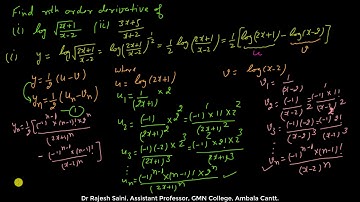 Find nth order derivative of
(i) log √(2x+1)/(x-2) (ii) (3x+5)/(x+2)
(i) y = log √(2x+1)/(x-2) = log ((2x+1)/(x-2))^(1/2) = 1/2 log (2x+1)/(x-2) = 1/2 [log(2x+1) - log(x-2)]
u v
y = 1/2 (u-v)
y_n = 1/2 (u_n - v_n)
①
y_n = 1/2 [ (-1)^(n-1) (n-1)! 2^n / (2x+1)^n
- (-1)^(n-1) (n-1)! / (x-2)^n ]
where
u = log(2x+1)
u_1 = 1/(2x+1) × 2
u_2 = (-1)/(2x+1)^2 × 2^2 = (-1)^1 1! 2^2/(2x+1)^2
u_3 = (-1)(-2)/(2x+1)^3 × 2^3 = (-1)^2 2! 2^3/(2x+1)^3
u_n = (-1)^(n-1) (n-1)! 2^n/(2x+1)^n
v = log(x-2)
v_1 = 1/(x-2)
v_2 = (-1)/(x-2)^2 = (-1)^1 1!/(x-2)^2
v_3 = (-1)(-2)/(x-2)^3 = (-1)^2 2!/(x-2)^3
v_n = (-1)^(n-1) (n-1)!/(x-2)^n
Dr Rajesh Saini, Assistant Professor, GMN College, Ambala Cantt.